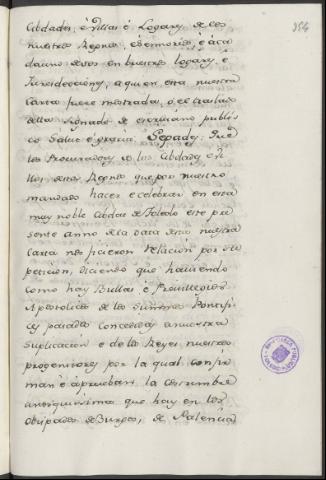 354
Cibdades, é Villas é Logares de los
nuestros Reynos, é Señorios, é á cada
dauno de vos en vuestros logares é
Jurisdicciones, a quien esta nuestra
Carta fuere mostrada, ó el traslado
della signado de escrivano publi
co Salud é gracia. Sepades: Que
los Procuradores de las Cibdades é Vi
llas destos Reynos que por nuestro
mandado hacer é celebrar en esta
muy noble Cibdad de Toledo este pre
sente anno de la data desta nuestra
carta nos ficieron relacion por su
peticion, diciendo que haviendo
como hay Bullas é Previllegios
Apostolicos de los Summos Pontifi
ces pasados concesos á nuestra
suplicacion é de los Reyes nuestros
progenitores por la qual confir
man é aprueban la costumbre
antiquisima que hay en los
Obispados de Burgos, de Palencia